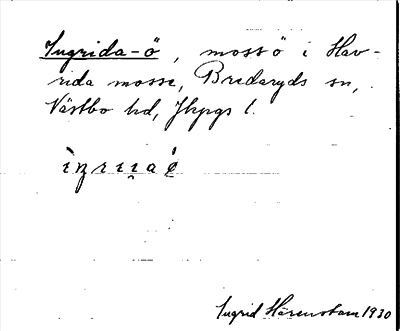 Ingrida-ö, mossö i Hav-
rida mosse, Bredaryds sn,
Västbo hd, Jkpgs l.
Ingrid Härenstam 1930